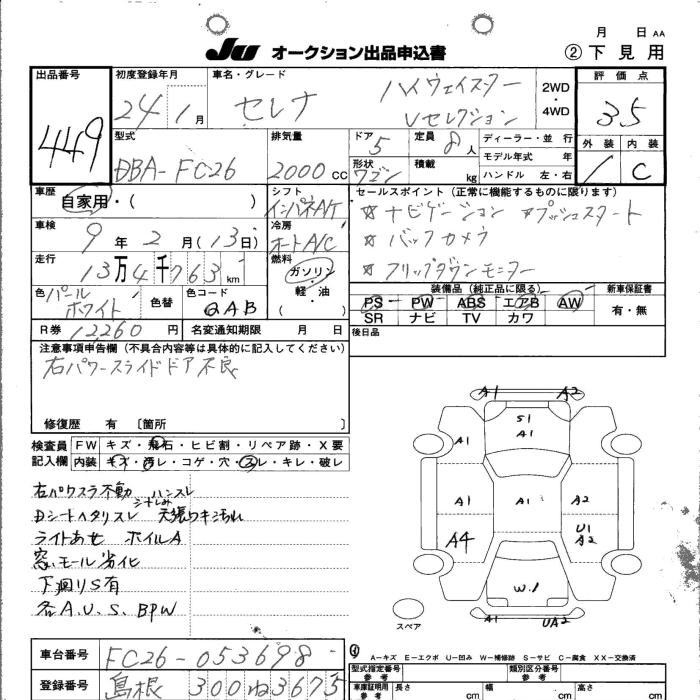 月 日 AA
JU オークション出品申込書
② 下見用
出品番号 449
初度登録年月 24年 1月
車名・グレード セレナ ハイウェイスター Vセレクション
2WD・4WD
評価点 3.5
外装 内装
/ C
型式 DBA-FC26
排気量 2000 CC
ドア 5
形状 ワゴン
定員 8人
積載 kg
ディーラー・並行
モデル年式 年
ハンドル 左・右
車歴 自家用・( )
シフト インパネA/T
セールスポイント (正常に機能するものに限ります)
☆ナビゲーション ☆プッシュスタート
☆バックカメラ
☆フリップダウンモニター
車検 9年2月(13日)
冷房 オートA/C
走行 13万4千763km
燃料 ガソリン 軽・油 ( )
色 パールホワイト
色替
色コード QAB
装備品 (純正品に限る) 新車保証書
PS PW ABS エアB AW
SR ナビ TV カワ
有・無
R券 12260円
名変通知期限 月 日
後日品
注意事項申告欄 (不具合内容等は具体的に記入してください)
右パワースライドドア不良
修復歴 有 〔箇所 〕
検査員記入欄
FW キズ・飛石・ヒビ割・リペア跡・X要
内装 キズ・汚レ・コゲ・穴・スレ・キレ・破レ
右パワスラ不動 ハンスレ
Dシートヘタリスレ シートしみ 天張ワキ汚れ
ライトあせ ホイルA
窓モール劣化
下廻りS有
各A.U.S.BPW
A1 A2
S1
A1
A1 A1
A1 A1 A2
A4 U1
A2
W.1
A1 UA2
スペア
A−キズ E−エクボ U−凹み W−補修跡 S−サビ C−腐食 XX−交換済
車台番号 FC26-053698
登録番号 島根 300 ね 3675
型式指定番号 参考
類別区分番号 参考
車庫証明用 参考
長さ cm
幅 cm
高さ cm